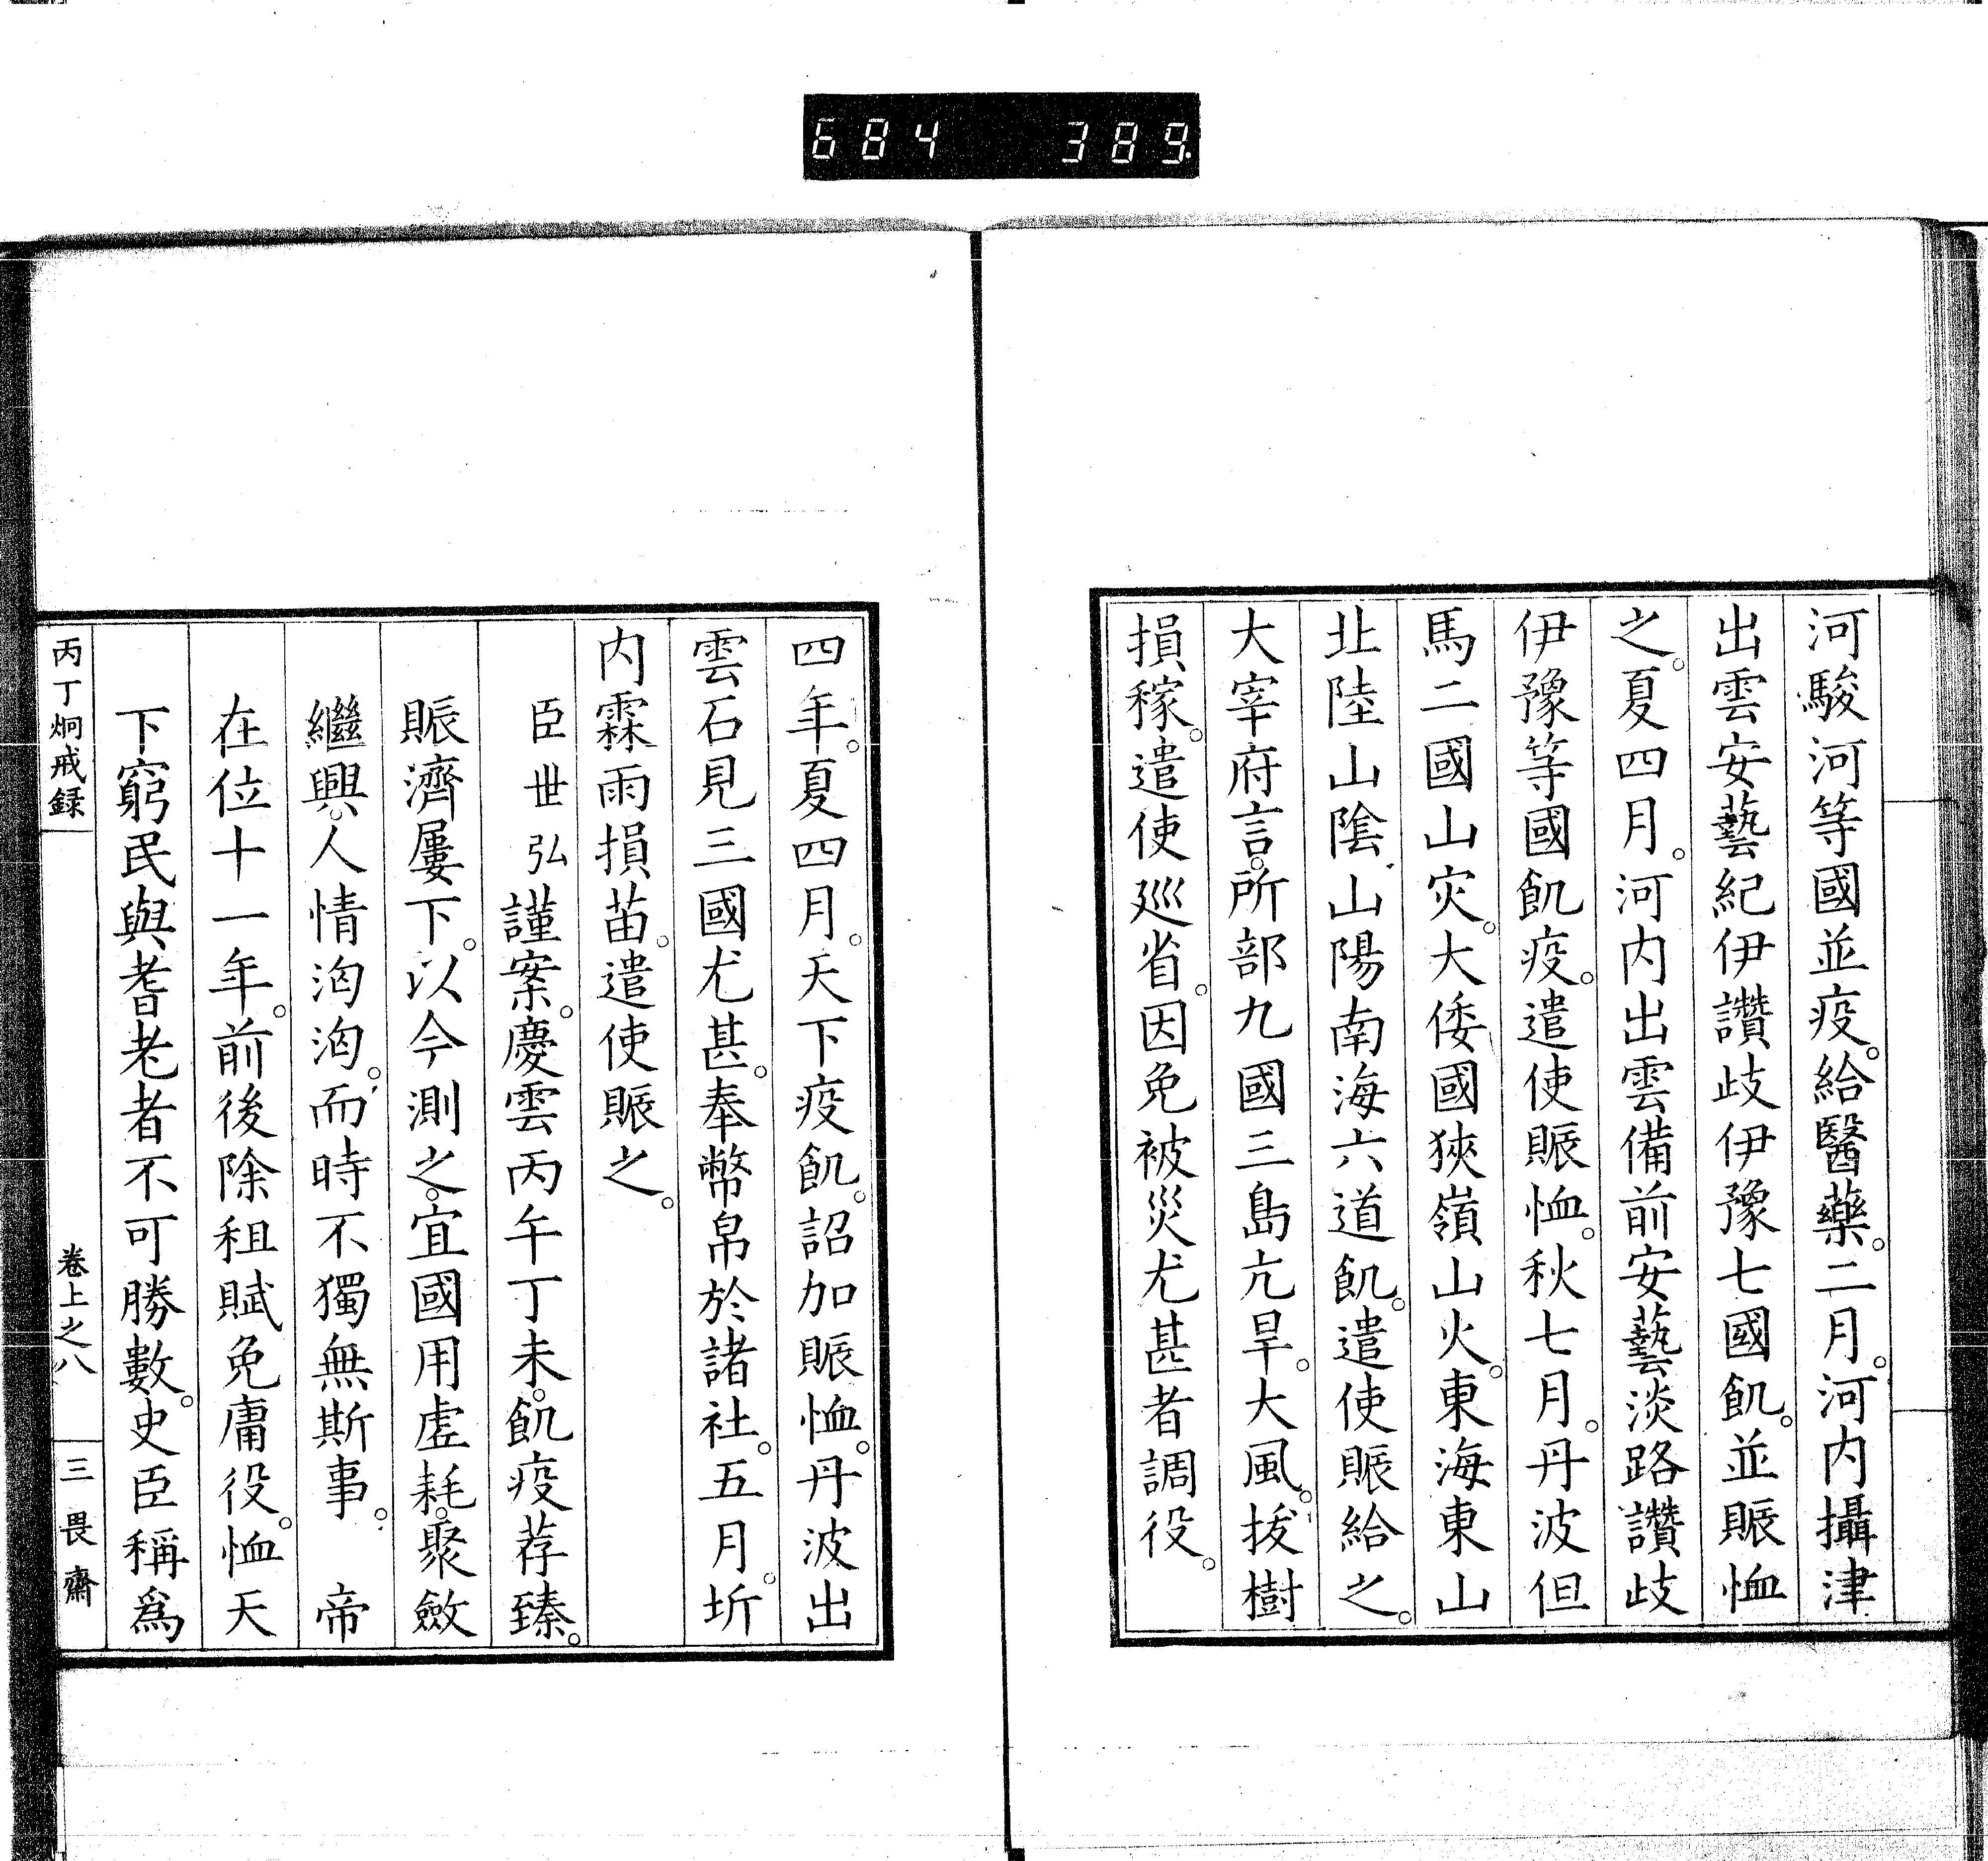 684 389.
河駿河等國並疫。給醫藥。二月。河内攝津
出雲安藝紀伊讚歧伊豫七國飢。並賑恤
之。夏四月。河内出雲備前安藝淡路讚歧
伊豫等國飢疫。遣使賑恤。秋七月。丹波但
馬二國山灾。大倭國狹嶺山火。東海東山
北陸山陰山陽南海六道飢。遣使賑給之。
大宰府言。所部九國三島亢旱。大風。拔樹
損稼。遣使廵省。因免被災尤甚者調役。
四年。夏四月。天下疫飢。詔加賑恤。丹波出
雲石見三國尤甚。奉幣帛於諸社。五月。圻
内霖雨損苗。遣使賑之。
臣世弘謹案。慶雲丙午丁未。飢疫荐臻。
賑濟屢下。以今測之。宜國用虛耗。聚斂
繼興。人情洶洶。而時不獨無斯事。 帝
在位十一年。前後除租賦免庸役。恤天
下窮民與耆老者不可勝數。史臣稱爲
丙丁炯戒録 卷上之八 三畏齋